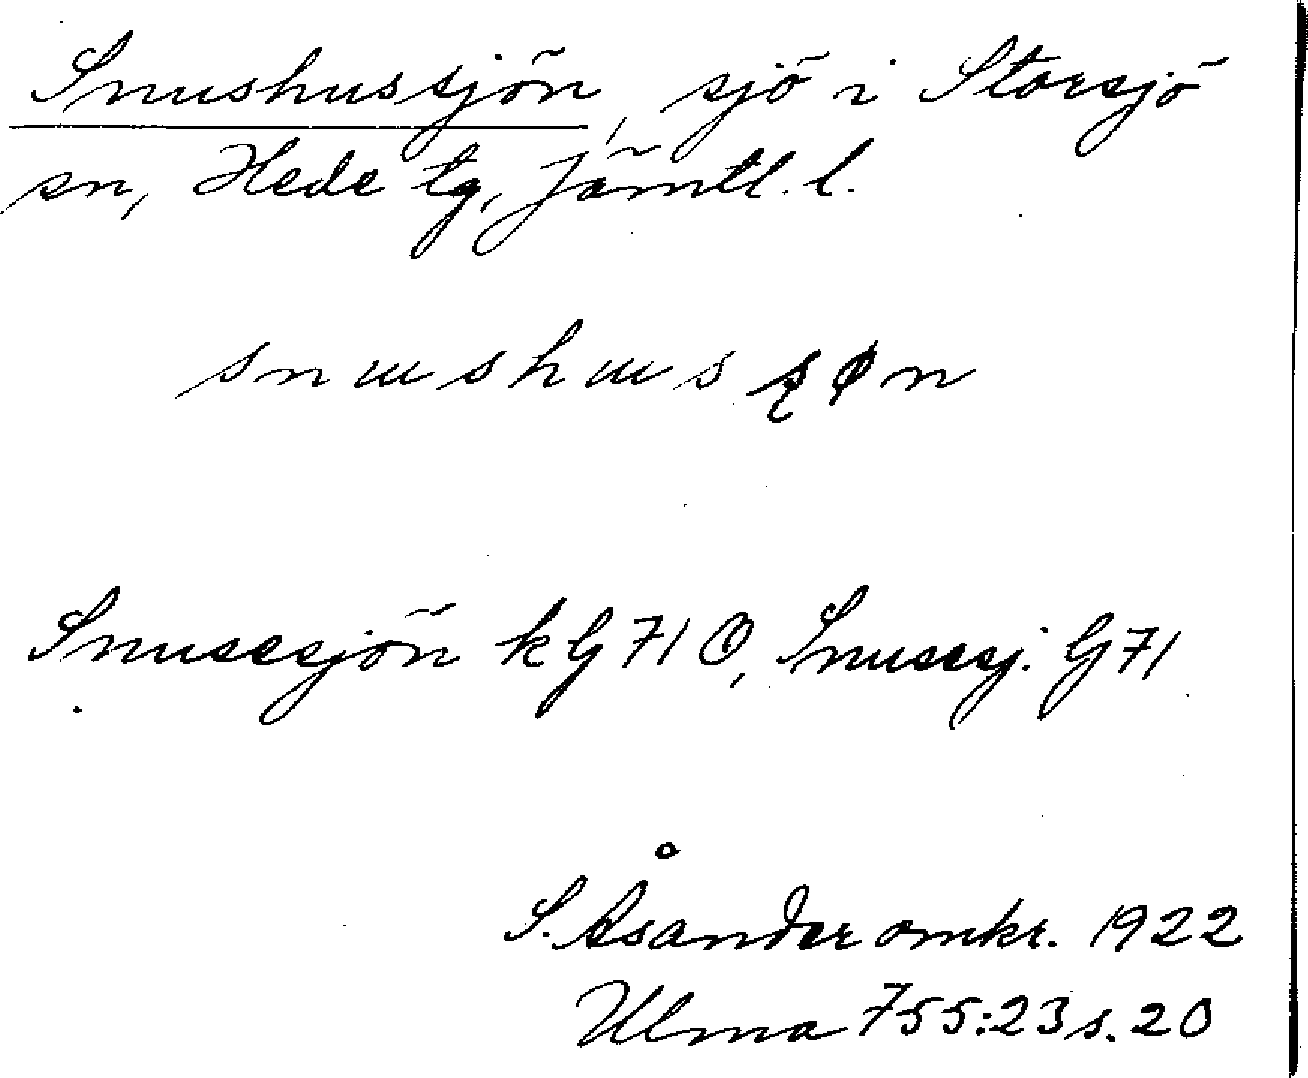 Snushussjön, sjö i Storsjö
sn, Hede tg, Jämtl. l.
snɯshɯs ʂøn
Snusesjön kG 71 O, Snusesj. G 71
S. Åsander omkr. 1922
Ulma 755:23 s. 20